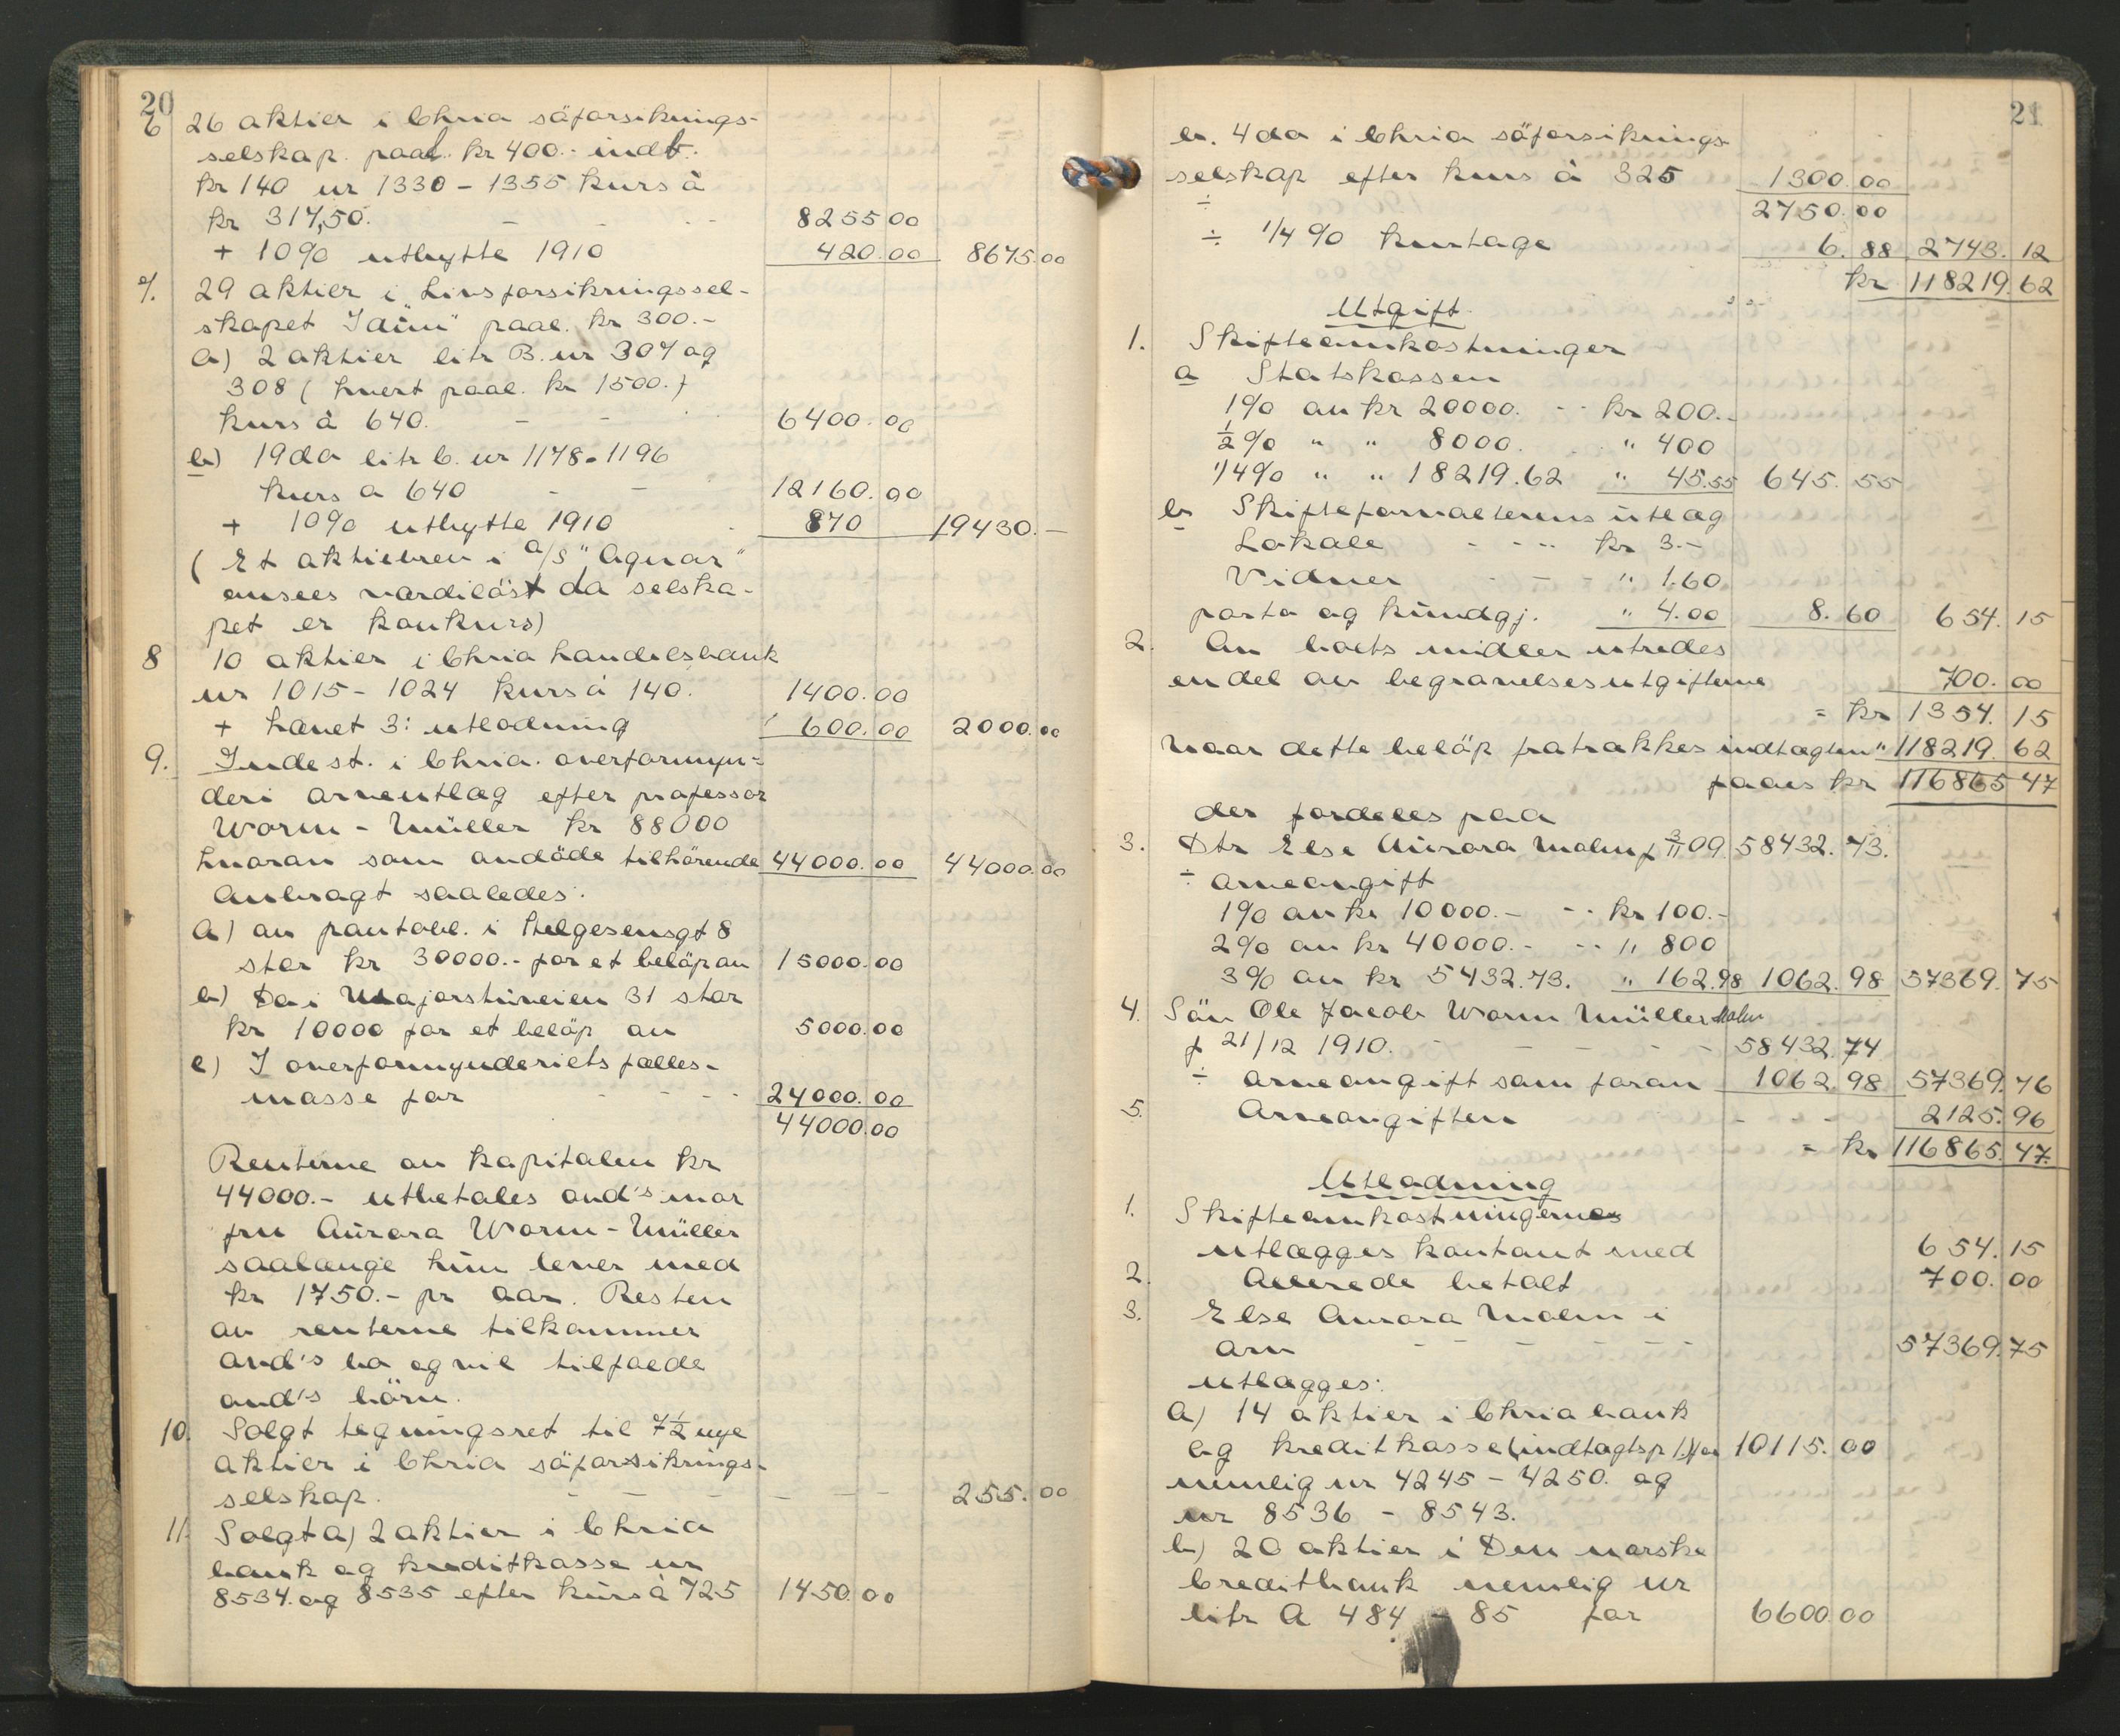 20
6 26 aktier i Chria söforsikrings-
selskap. paal. kr 400.- indb.
kr 140 nr 1330 - 1355 kurs à
kr 317,50. - - - 8255 00
+ 10% utbytte 1910 420.00 8675.00
7. 29 aktier i Livsforsikringssel-
skapet "Idun" paal. kr 300.-
a) 2 aktier litr B. nr 307 og
308 (hvert paal. kr 1500.)
kurs à 640. - - 6400.00
b) 19 do litr C. nr 1178-1196
kurs a 640 - - 12160.00
+ 10% utbytte 1910 870 19430.-
(Et aktiebrev i A/S "Agnar"
ansees værdilöst da selska-
pet er konkurs)
8 10 aktier i Chria handelsbank
nr 1015 - 1024 kurs à 140. 1400.00
+ hævet 3: utlodning 600.00 2000.00
9. Indest. i Chria. overformyn=
deri arveutlæg efter professor
Worm-Müller kr 88000
hvoraf som avdöde tilhörende 44000.00 44000.00
Anbragt saaledes:
a) av pantobl. i Helgesensgt 8
stor kr 30000.- for et belöp av 15000.00
b) Do i Majorstuveien 31 stor
kr 10000 for et belöp av 5000.00
c) I overformynderiets fælles-
masse for - - - - 24000.00
44000.00
Renterne av kapitalen kr
44000.- utbetales avd's mor
fru Aurora Worm-Müller
saalænge hun lever med
kr 1750.- pr aar. Resten
av renterne tilkommer
avd's bo og vil tilfalde
avd's börn.
10. Solgt tegningsret til 7½ nye
aktier i Chria söforsikrings-
selskap. - - - - - - 255.00
11. Solgt a) 2 aktier i Chria
bank og kreditkasse nr
8534. og 8535 efter kurs à 725 1450.00
21
b. 4 do i Chria söforsikrings-
selskap efter kurs à 325 1300.00
÷ 2750.00
÷ 1/4 % kurtage 6.88 2743.12
kr 118219.62
Utgift.
1. Skifteomkostninger
a Statskassen
1% av kr 20000. - - kr 200.-
½% " " 8000. " 400
1/4% " " 18219.62 " 45.55 645.55
b Skifteforvalterens utlæg
Lokale - - - kr 3.-
Vidner - - - " 1.60
porto og kundgj. " 4.00 8.60 654.15
2. Av boets midler utredes
en del av begravelsesutgifterne 700.00
= kr 1354.15
Naar dette belöp fratrækkes indtægten " 118219.62
faaes kr 116865 47
der fordeles paa
3. Dtr Else Aurora Malm f 3/11 09 58432.73.
÷ arveavgift
1% av kr 10000.- - - kr 100.-
2% av kr 40000.- - - " 800
3% av kr 5432.73. " 162.98 1062.98 57369.75
4. Sön Ole Jacob Worm Müller Malm
f 21/12 1910. - - - - - 58432.74
÷ arveavgift som foran 1062.98 57369.76
5. Arveavgiften - - - 2125.96
= kr 116865.47.
Utlodning
1. Skifteomkostningerne
utlægges kontant med 654.15
2. Allerede betalt 700.00
3. Else Aurora Malm i
arv - - - - - - 57369.75
utlægges:
a) 14 aktier i Chria bank
og kreditkasse (indtægtsp 1.) for 10115.00
nemlig nr 4245 - 4250. og
nr 8536 - 8543.
b) 20 aktier i Den norske
Creditbank nemlig nr
litr A 484 - 85 for 6600.00